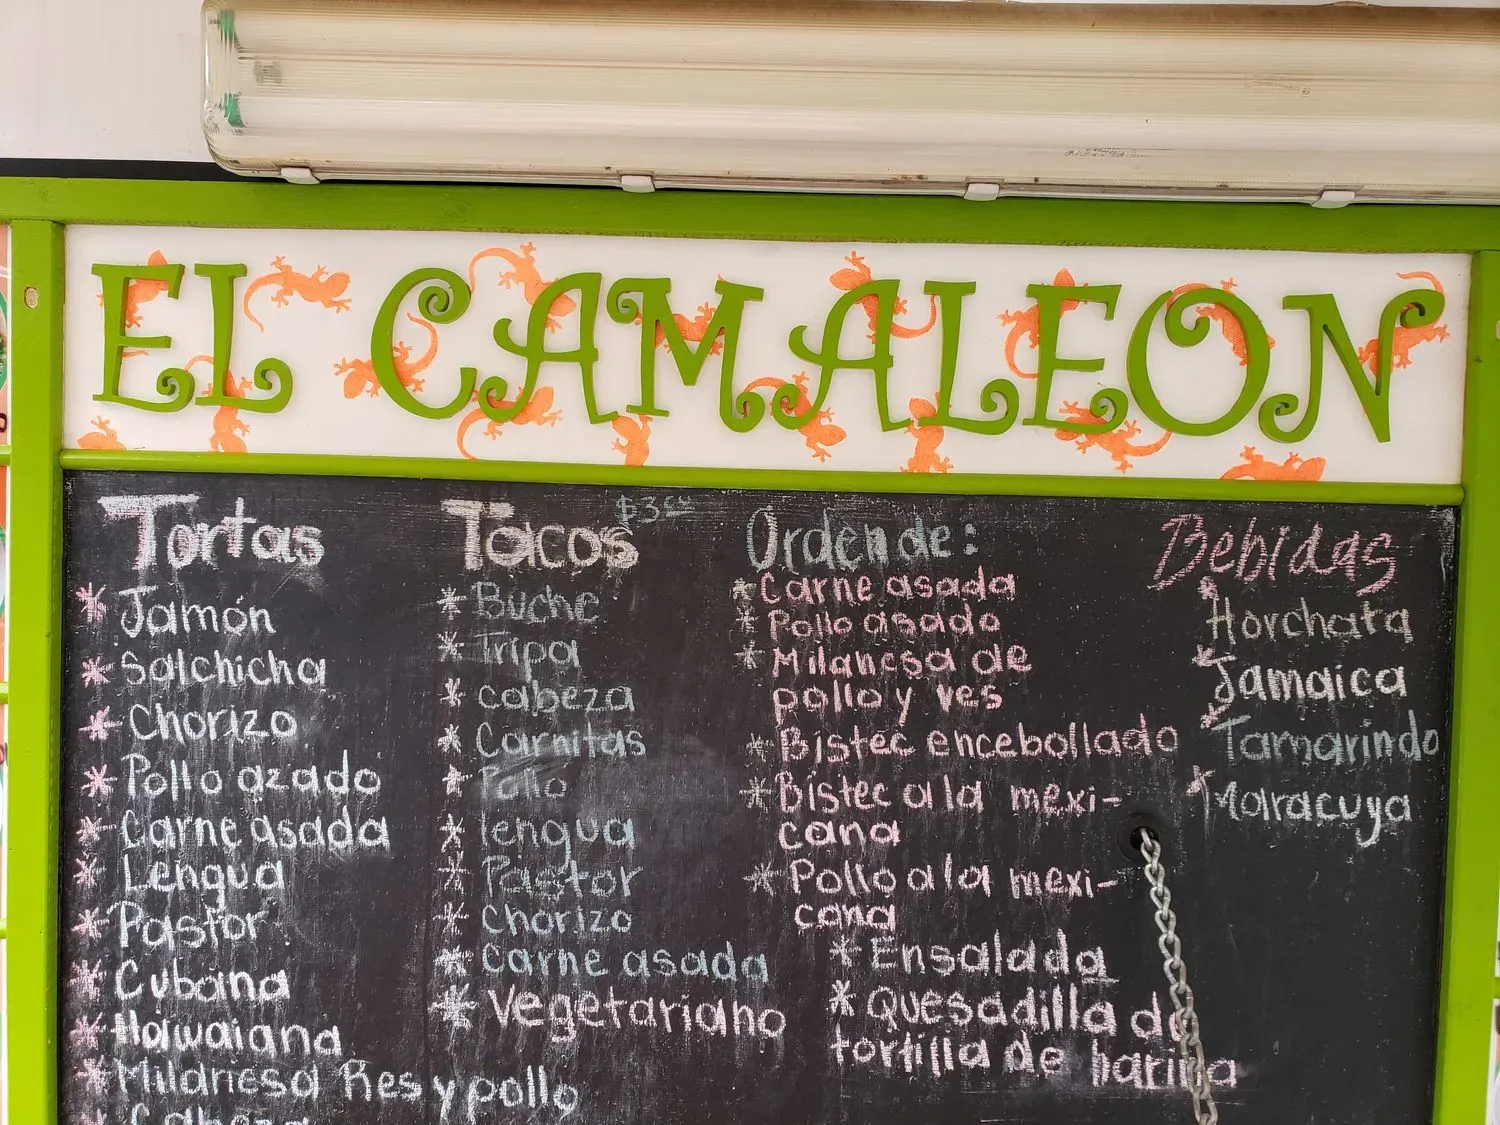 EL CAMALEON
Tortas
* Jamón
* Salchicha
* Chorizo
* Pollo azado
* Carne asada
* Lengua
* Pastor
* Cubana
* Hawaiana
* Milanesa Res y pollo
Cabeza
Tacos $3.00
* Buche
* Tripa
* cabeza
* Carnitas
* Pollo
* lengua
* Pastor
* Chorizo
* carne asada
* vegetariano
Orden de:
* Carne asada
* Pollo asado
* Milanesa de
pollo y ves
* Bistec encebollado
* Bistec a la mexi-
cana
* Pollo a la mexi-
cana
* Ensalada
* Quesadilla de
tortilla de harina
Bebidas
* Horchata
* Jamaica
* Tamarindo
* Maracuya